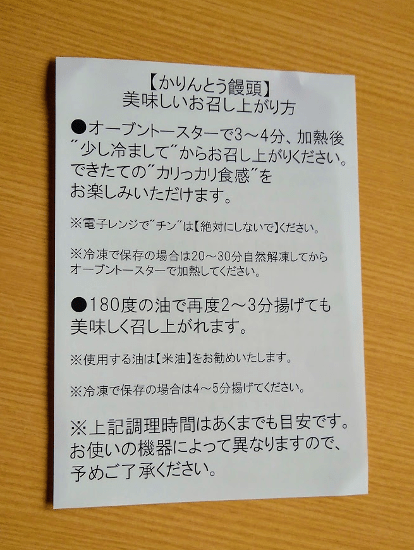 【かりんとう饅頭】
美味しいお召し上がり方
●オーブントースターで3～4分、加熱後
"少し冷まして"からお召し上がりください。
できたての"カリっカリ食感"を
お楽しみいただけます。
※電子レンジで"チン"は【絶対にしないで】ください。
※冷凍で保存の場合は20～30分自然解凍してから
オーブントースターで加熱してください。
●180度の油で再度2～3分揚げても
美味しく召し上がれます。
※使用する油は【米油】をお勧めいたします。
※冷凍で保存の場合は4～5分揚げてください。
※上記調理時間はあくまでも目安です。
お使いの機器によって異なりますので、
予めご了承ください。